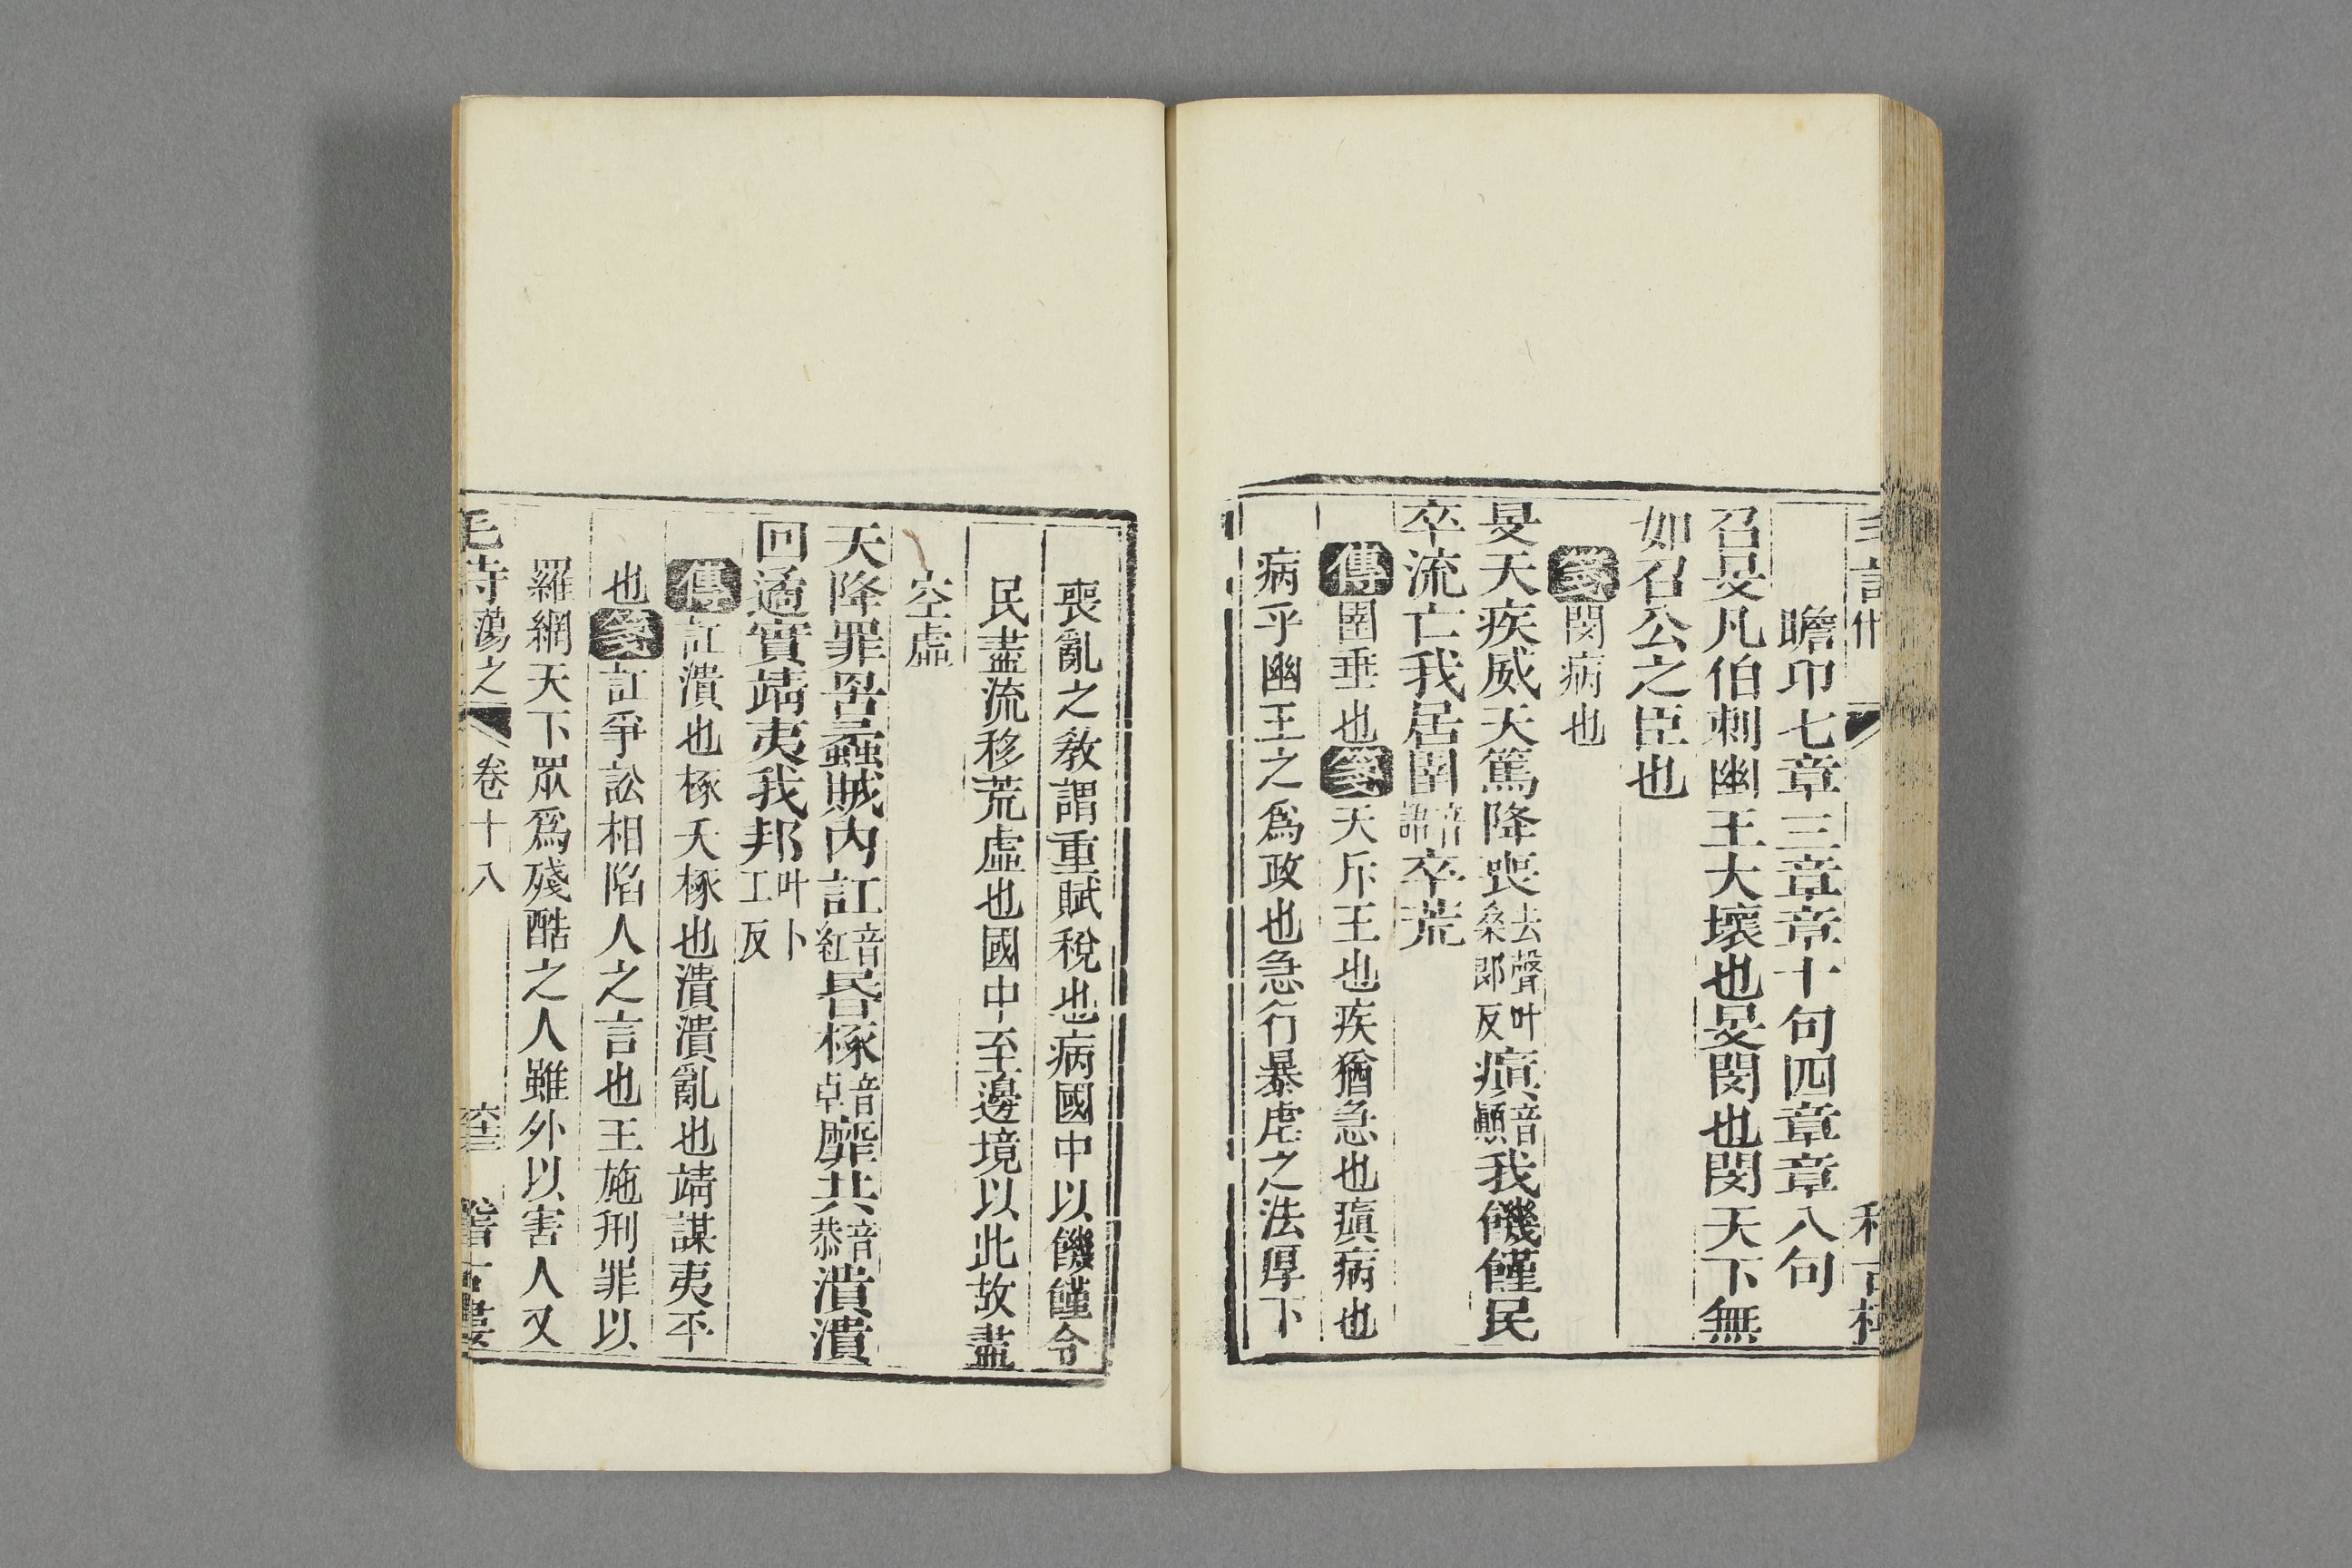 瞻卬七章三章章十句四章章八句
召旻凡伯刺幽王大壞也旻閔也閔天下無
如召公之臣也
箋閔病也
旻天疾威天篤降喪去聲叶桑郎反瘨音顚我饑饉民
卒流亡我居圉音語卒荒
傳圉垂也箋天斥王也疾猶急也瘨病也
病乎幽王之爲政也急行暴虐之法厚下
喪亂之教謂重賦稅也病國中以饑饉令
民盡流移荒虛也國中至邊境以此故盡
空虛
天降罪罟蟊賊内訌音紅昬椓音卓靡共音恭潰潰
回遹實靖夷我邦叶卜工反
傳訌潰也椓夭椓也潰潰亂也靖謀夷平
也箋訌爭訟相陷人之言也王施刑罪以
羅網天下眾爲殘酷之人雖外以害人又
毛詩蕩之 卷十八 稽古樓